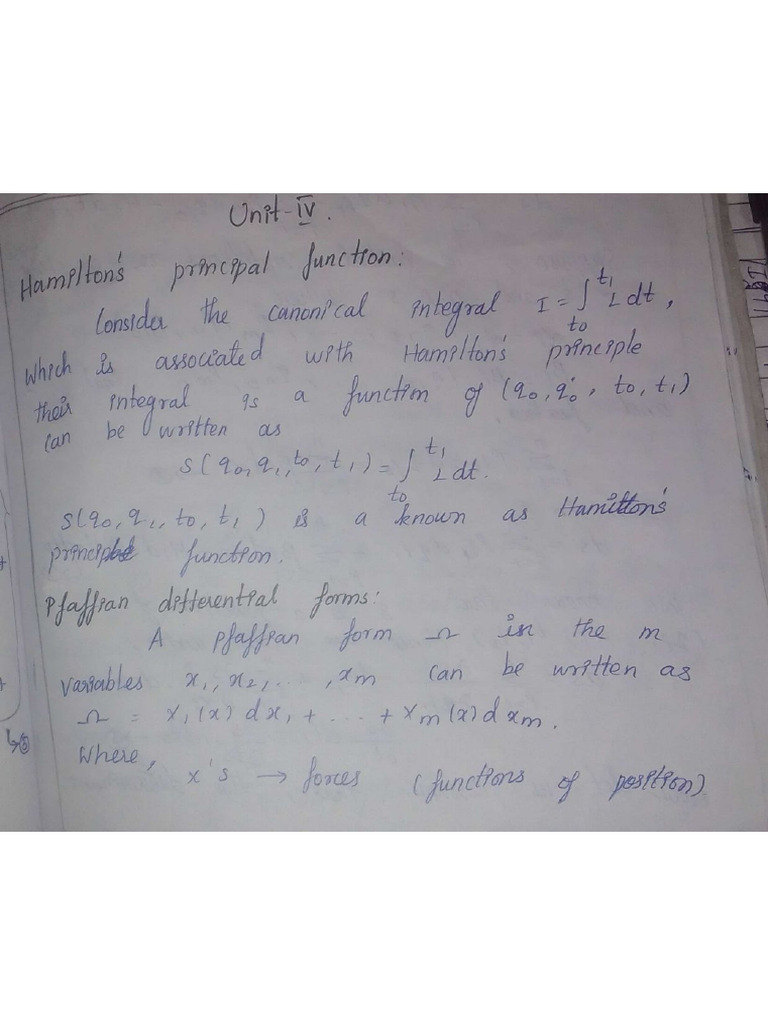 Unit-IV.
Hamilton's principal function:
Consider the canonical integral I = ∫_{t0}^{t1} L dt,
which is associated with Hamilton's principle
their integral is a function of (q0, q0', t0, t1)
can be written as
S(q0, q1, t0, t1) = ∫_{t0}^{t1} L dt.
S(q0, q1, t0, t1) is a known as Hamilton's
principle function.
Pfaffian differential forms:
A pfaffian form Ω in the m
variables x1, x2, ..., xm can be written as
Ω = X1(x) dx1 + ... + Xm(x) dxm.
Where,
x's → forces (functions of position)